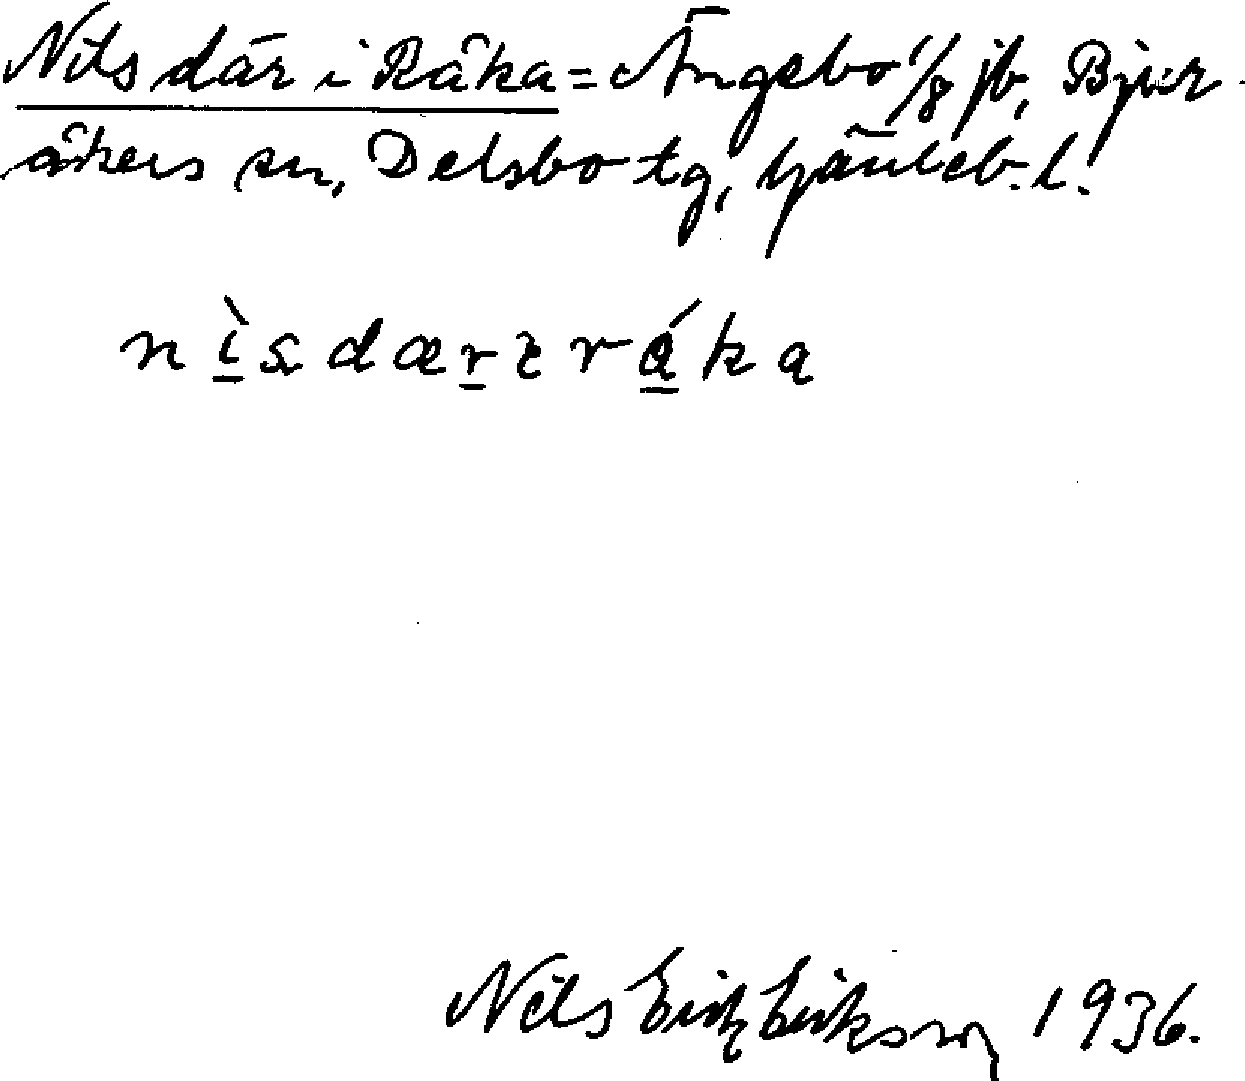 Nils där i Råka = Ängebo 1/8 jb, Bjur-
åkers sn, Delsbo tg, Gävleb. l.
nìsdærɩráka
Nils Erik Eriksson 1936.